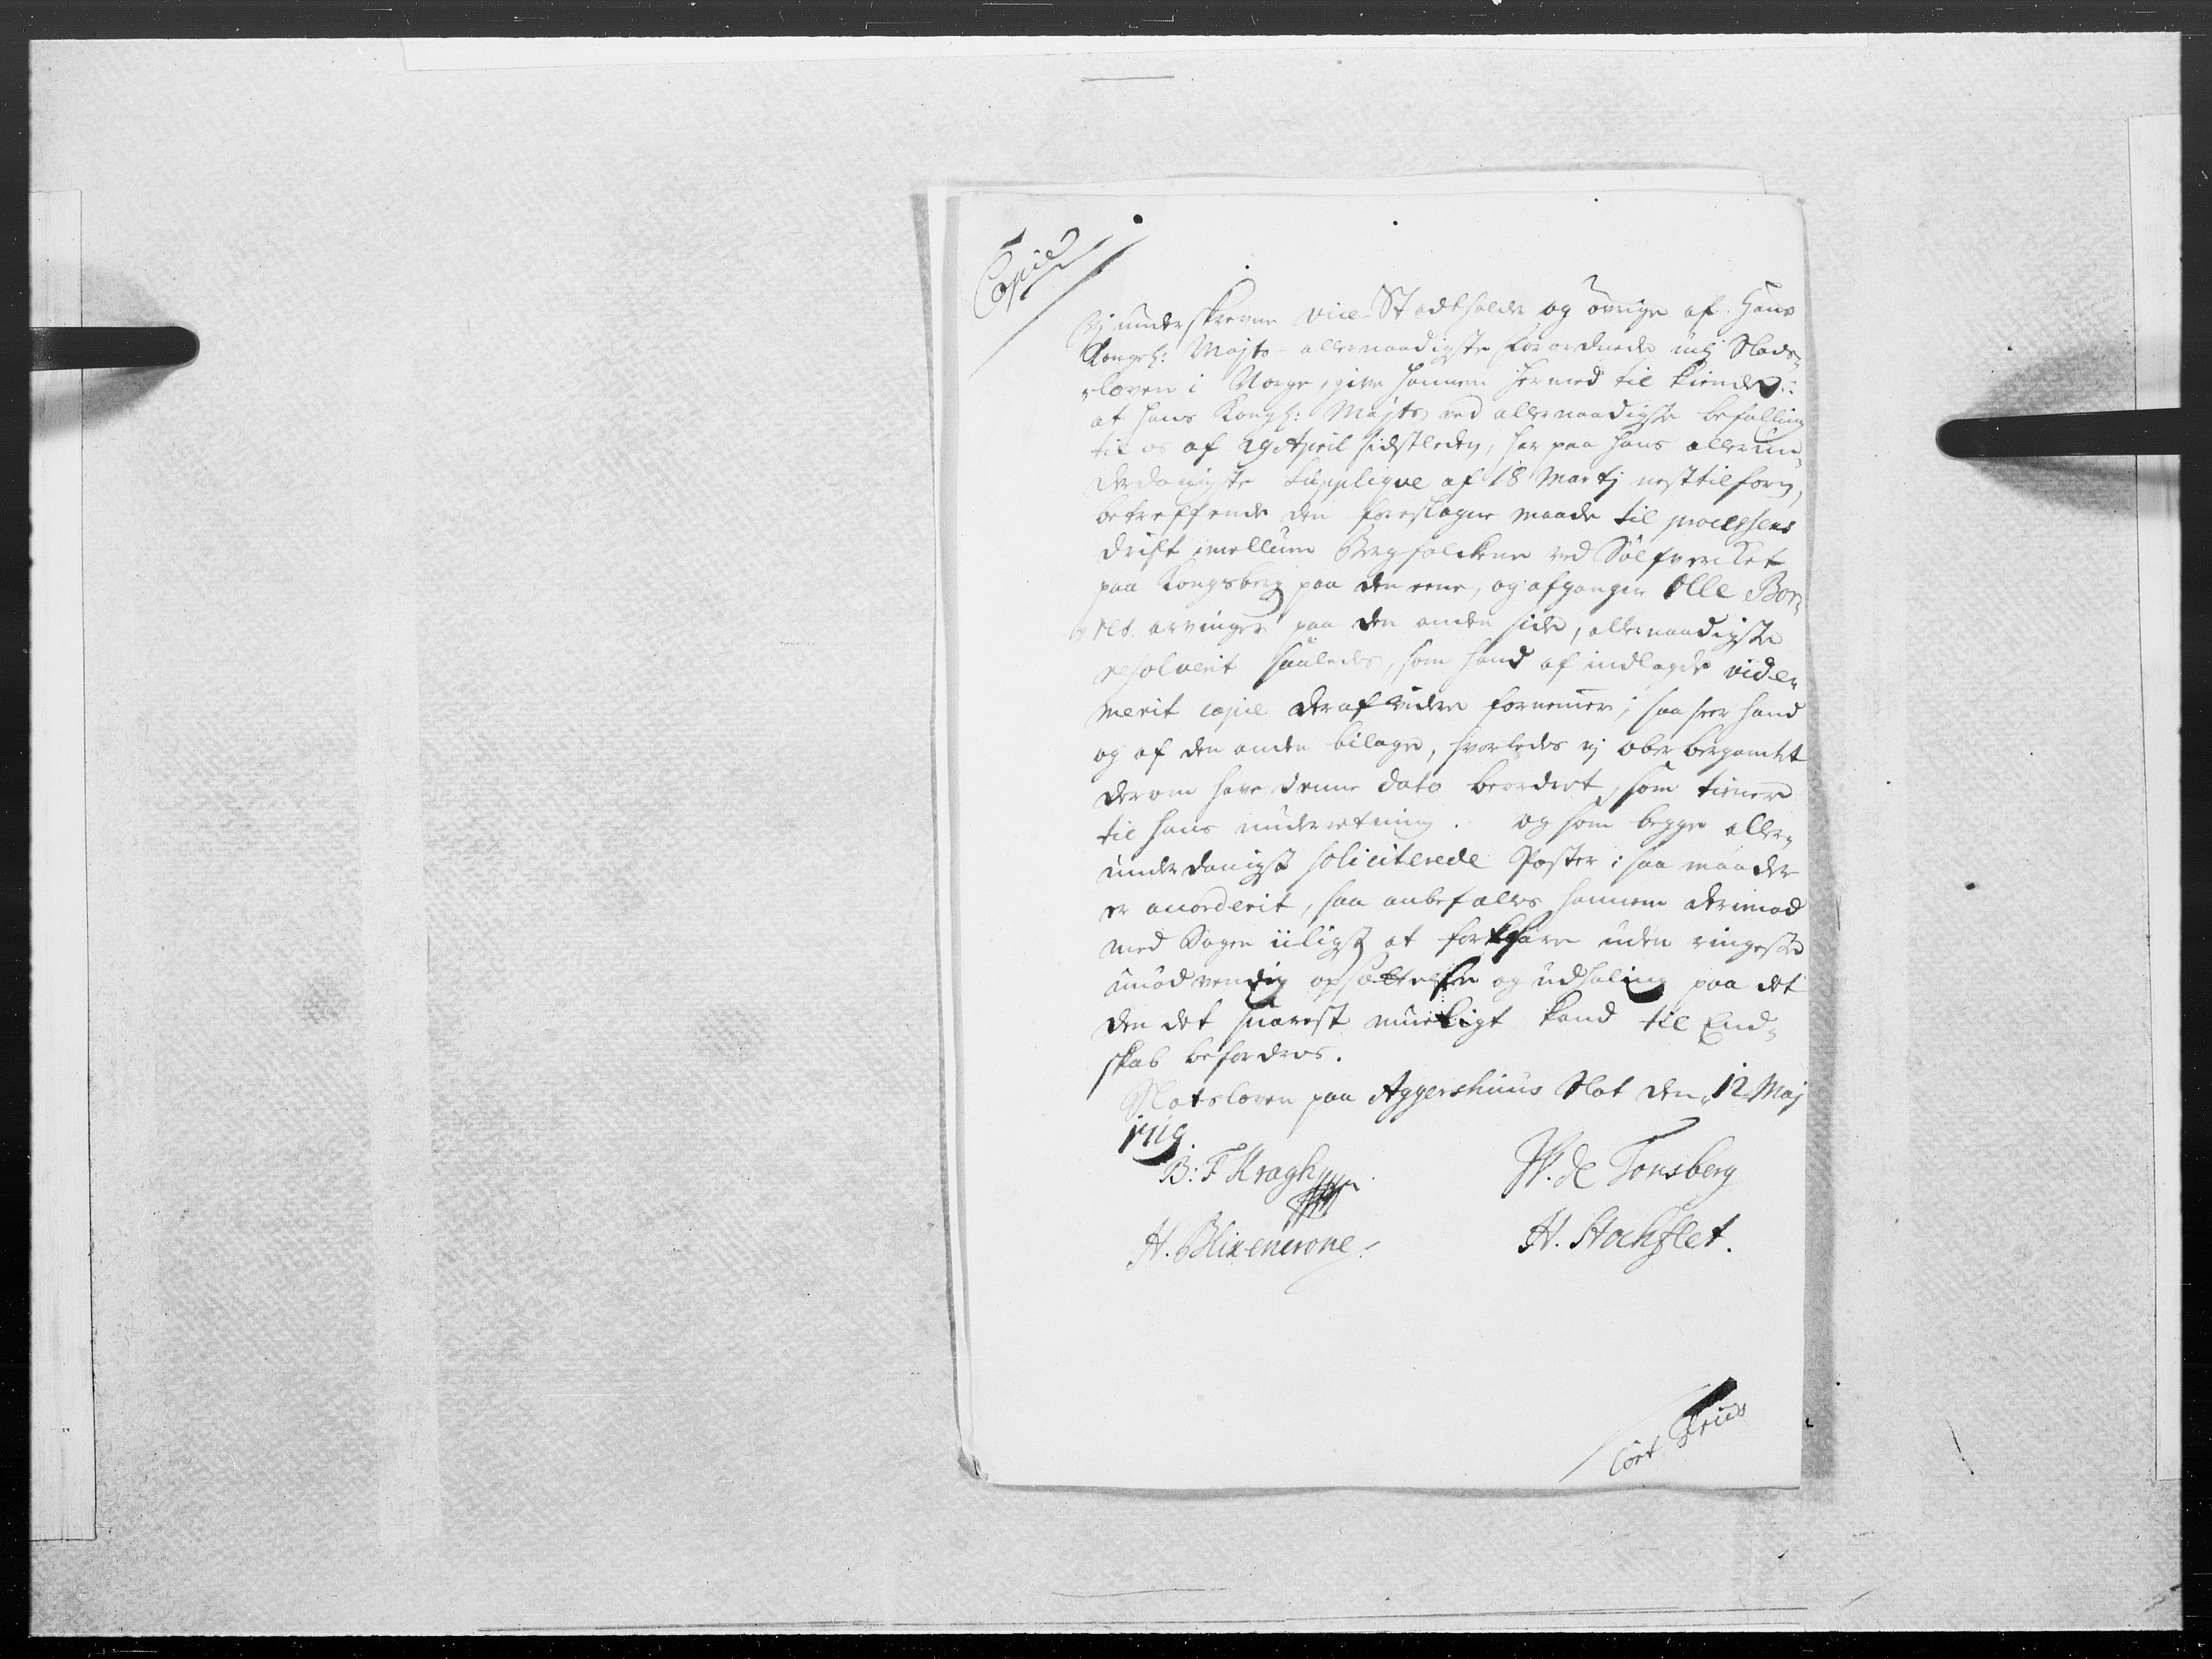 Copie
Vj underskrevne Vice-Stadtholder og övrige af Hans
Kongel: Majts allernaadigste forordnede udj Slods-
loven i Norge, give hannem hermed til kiende:
at Hans Kongl: Majts ved allernaadigste befalling
til os af 29 April sidstleden, har paa hans allerun-
derdanigste Supplique af 18 Martj nesttilforn,
betreffende den foreslagne maade til processens
drift imellum Bergfolckene ved Sölfvercket
paa Kongsberg paa den eene, og afgangen Olle Bor-
res arvinger paa den anden side, allernaadigste
resolverit saaledes, som hand af indlagde vide-
merit copie deraf videre fornemmer; saa seer hand
og af den anden bilage, hvorledes vj Oberbergamtet
derom have denne dato beordret, som tienner
til hans underretning. og som begge aller-
underdanigst soliciterede Poster i saa maader
er accorderit, saa anbefales hannem derimod
med Sagen iiligst at fortfare uden ringeste
unödvendig opsættelse og udhaling paa det
den det snarest mueligt kand til End-
skab befordres.
Slotsloven paa Aggershuus Slot den 12 Maj
1719
B: F Kragh W. de Tonsberg
H. Blixencrone. H. Stochflet.
Cort Kruus